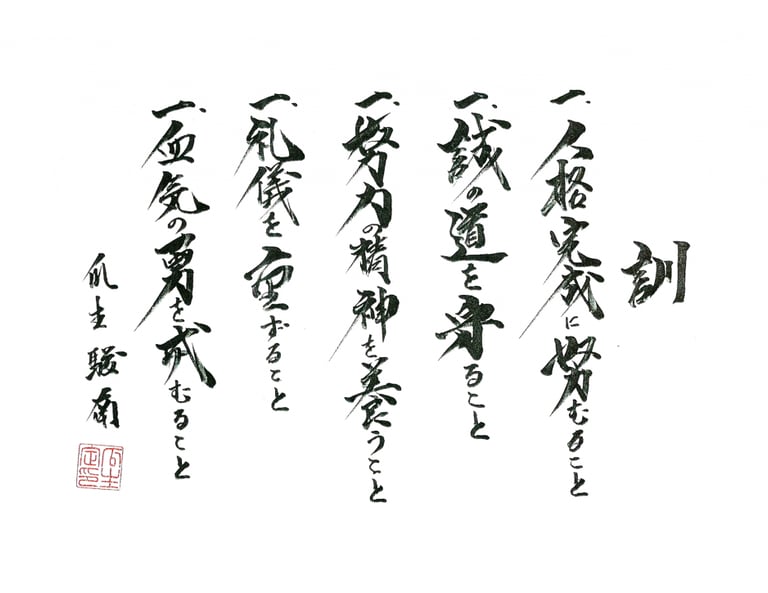 訓
一、人格完成に努むること
一、誠の道を守ること
一、努力の精神を養うこと
一、礼儀を重ずること
一、血気の勇を戒むること
瓜生駿